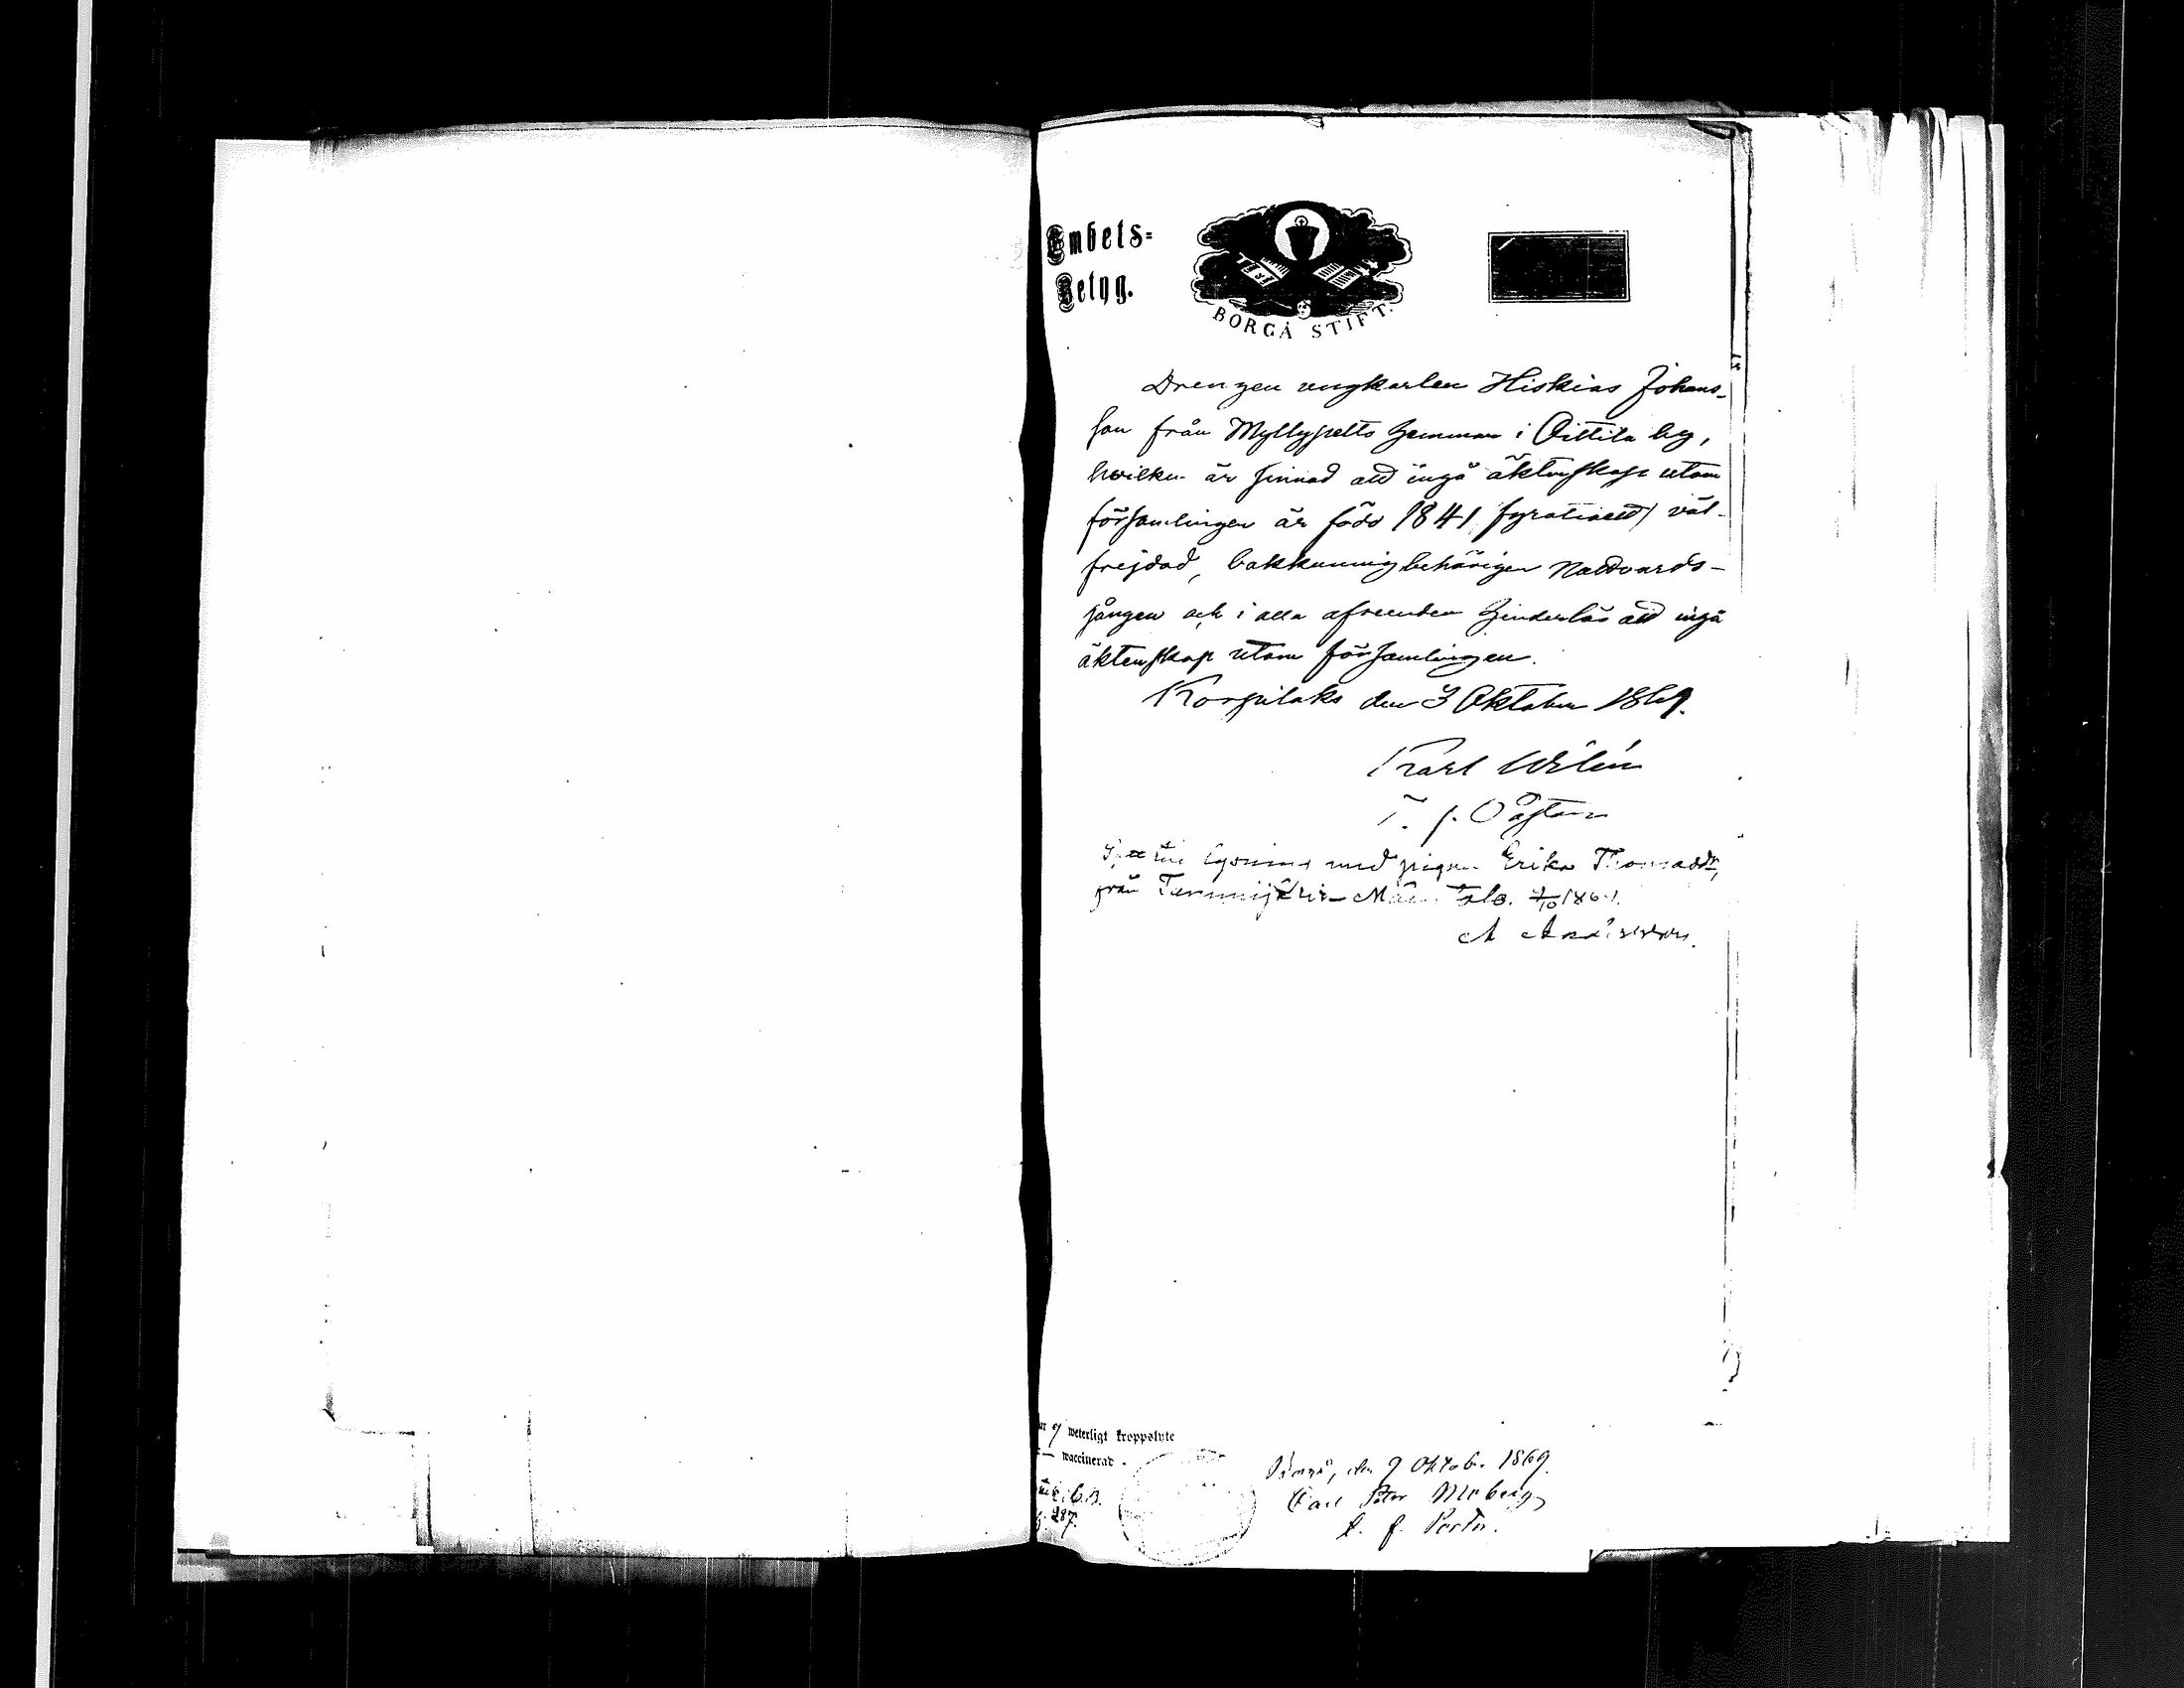 Embets=
Betyg.
BORGÅ STIFT.
Drengen ungkarlen Hiskias Johans-
son från Myllypelto hemman i Oittila by,
hvilken är sinnad att ingå äktenskap utom
församlingen är född 1841 fyratioett/ väl-
frejdad, bokkunnig behörigen Nattvards-
gången och i alla afseenden hinderlös att ingå
äktenskap utom församlingen.
Korpilaks den 3 Oktober 1869.
Karl Wilén
lysning med pigan Erika Thomasdr,
från
A
weterligt kroppslyte
— waccinerad -
C.B.
287.
den 9 Oktob. 1869.
Carl Peter